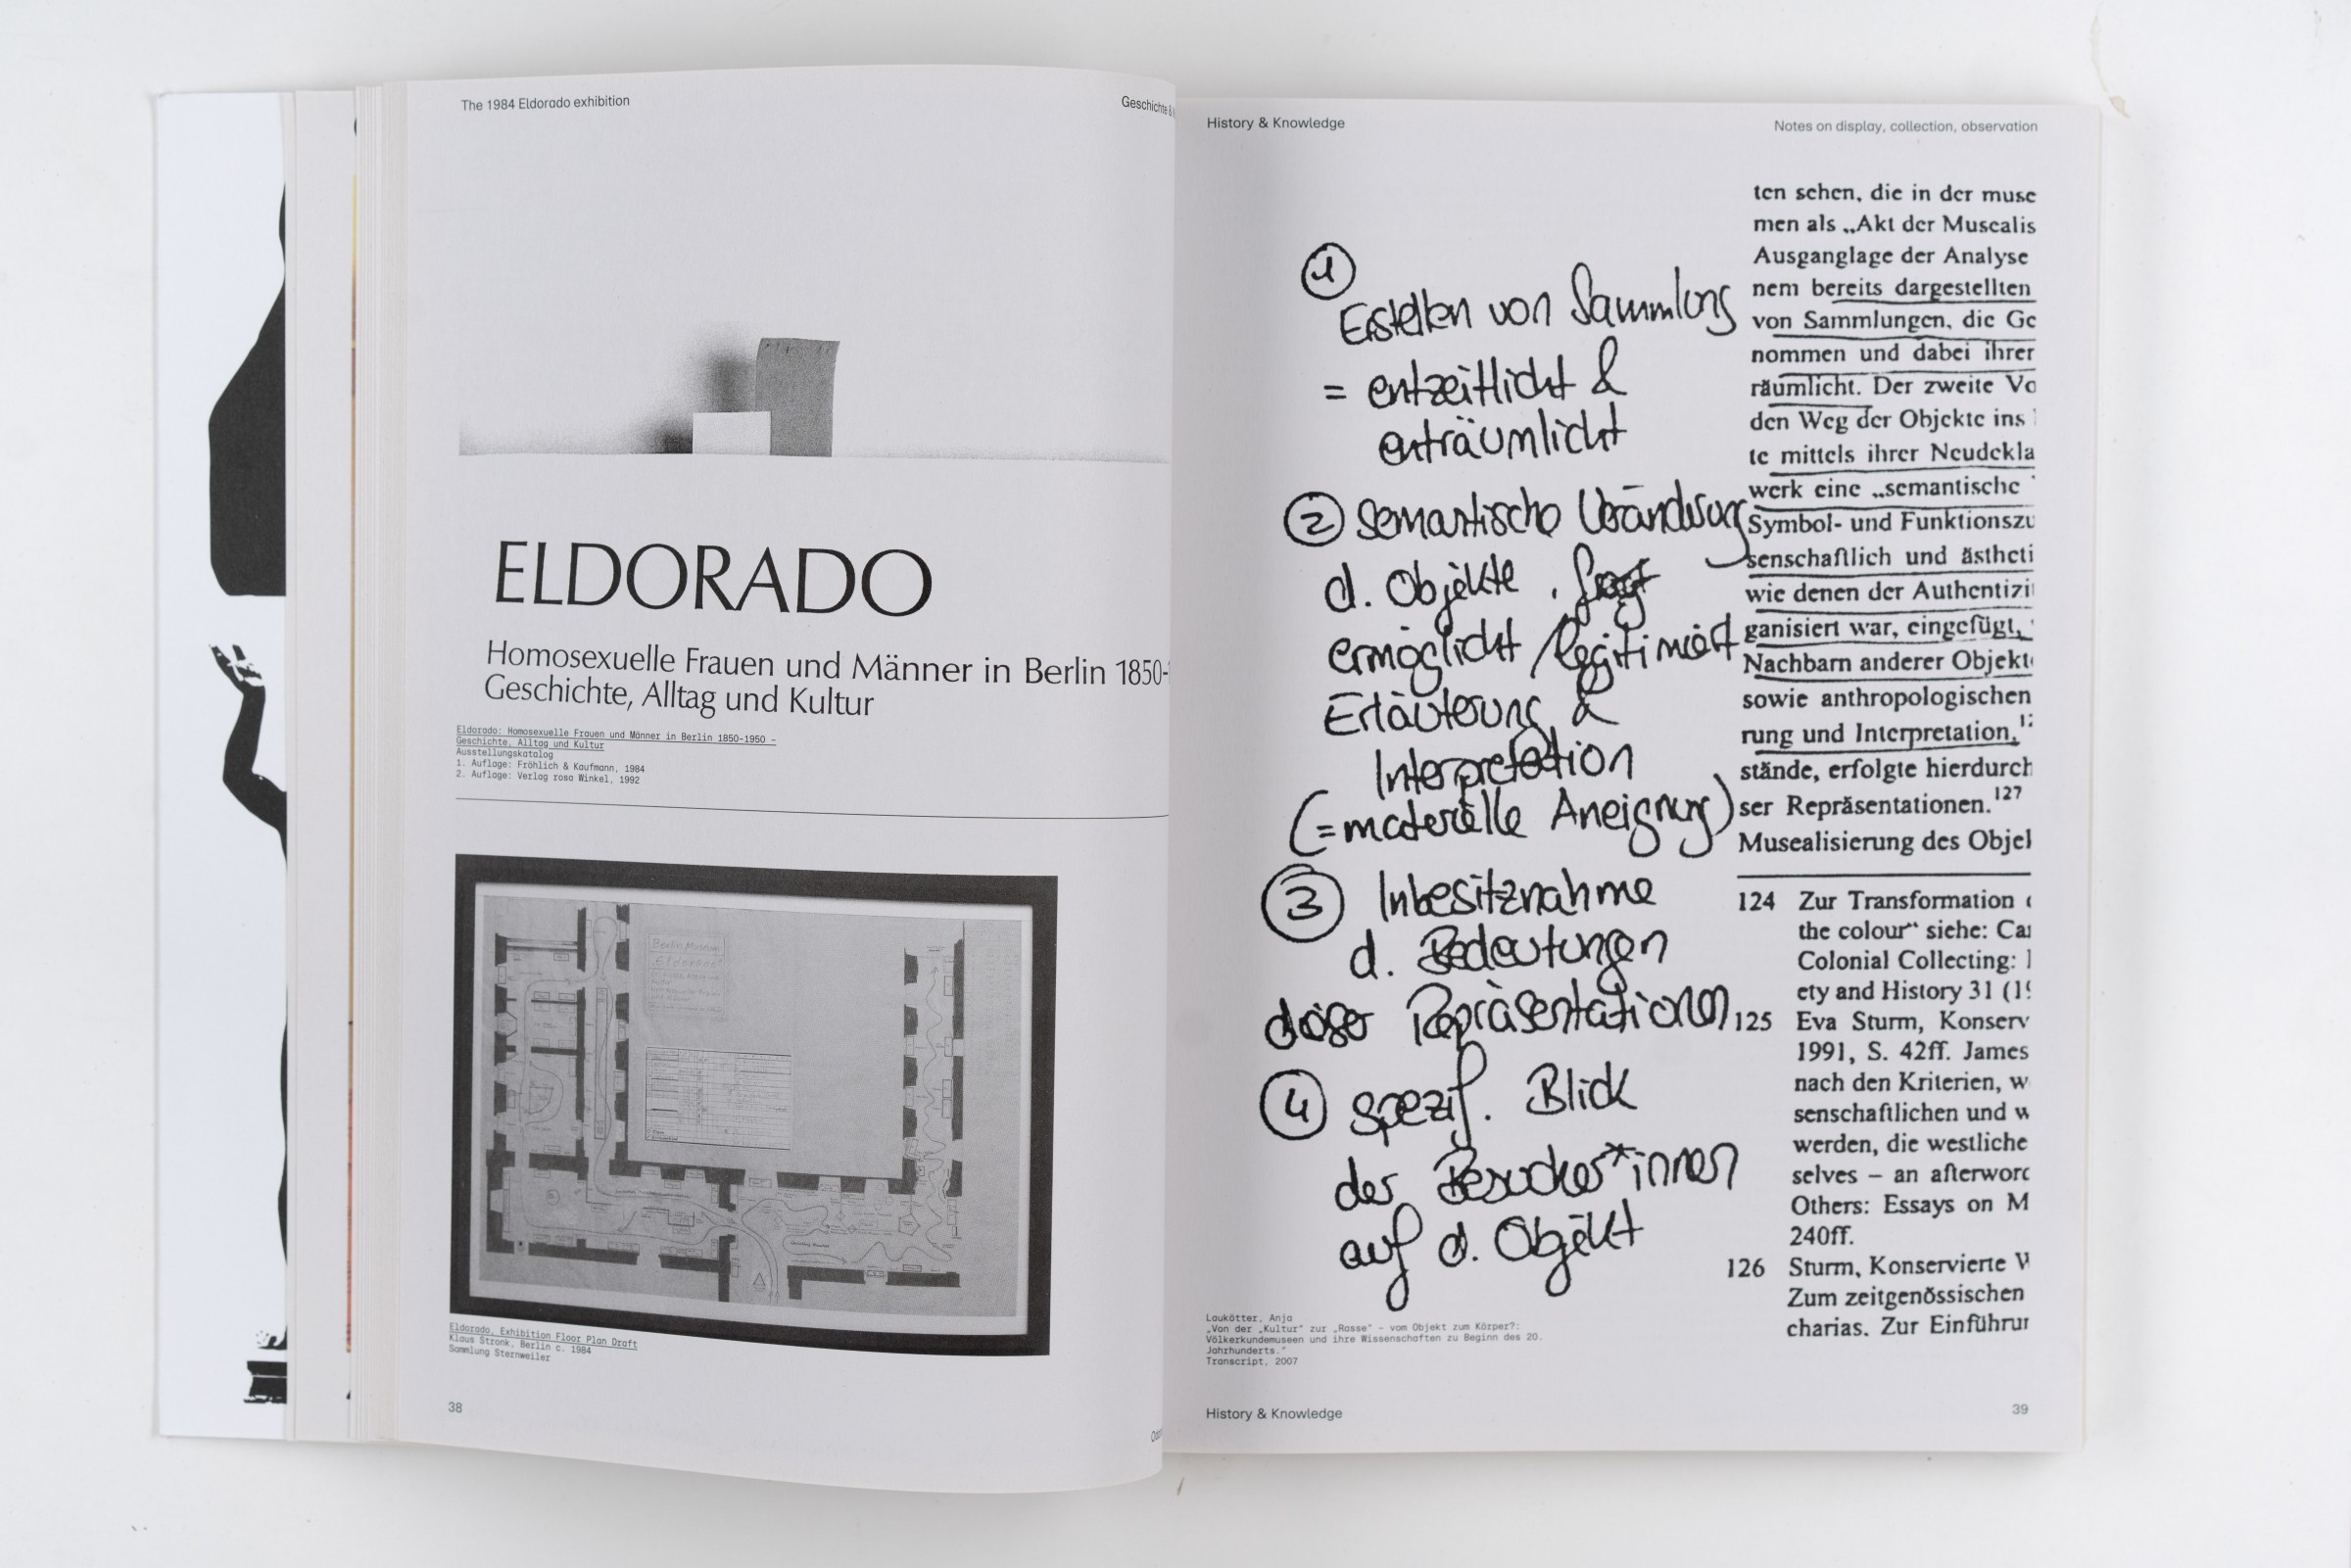 The 1984 Eldorado exhibition
Geschichte &
ELDORADO
Homosexuelle Frauen und Männer in Berlin 1850-
Geschichte, Alltag und Kultur
Eldorado: Homosexuelle Frauen und Männer in Berlin 1850-1950 –
Geschichte, Alltag und Kultur
Ausstellungskatalog
1. Auflage: Fröhlich & Kaufmann, 1984
2. Auflage: Verlag rosa Winkel, 1992
Berlin Museum
Eldorado, Exhibition Floor Plan Draft
Klaus Stronk, Berlin c. 1984
Sammlung Sternweiler
38
History & Knowledge
Notes on display, collection, observation
1
Erstellen von Sammlung
= entzeitlicht &
enträumlicht
2 semantische Veränderung
d. Objekte,
ermöglicht / legitimiert
Erläuterung &
Interpretation
(= materielle Aneignung)
3 Inbesitznahme
d. Bedeutungen
dieser Repräsentationen
4 spezif. Blick
der Besucher*innen
auf d. Objekt
ten sehen, die in der muse
men als „Akt der Musealis
Ausganglage der Analyse
nem bereits dargestellten
von Sammlungen, die Ge
nommen und dabei ihrer
räumlicht. Der zweite Vo
den Weg der Objekte ins
te mittels ihrer Neudekla
werk eine „semantische
Symbol- und Funktionszu
senschaftlich und ästheti
wie denen der Authentizi
ganisiert war, eingefügt,
Nachbarn anderer Objekt
sowie anthropologischen
rung und Interpretation.12
stände, erfolgte hierdurch
ser Repräsentationen.127
Musealisierung des Objel
124 Zur Transformation
the colour“ siehe: Ca
Colonial Collecting:
ety and History 31 (19
125 Eva Sturm, Konserv
1991, S. 42ff. James
nach den Kriterien, w
senschaftlichen und w
werden, die westliche
selves – an afterword
Others: Essays on M
240ff.
126 Sturm, Konservierte W
Zum zeitgenössischen
charias. Zur Einführur
Laukötter, Anja
„Von der „Kultur“ zur „Rasse“ – vom Objekt zum Körper?:
Völkerkundemuseen und ihre Wissenschaften zu Beginn des 20.
Jahrhunderts.“
Transcript, 2007
History & Knowledge
39